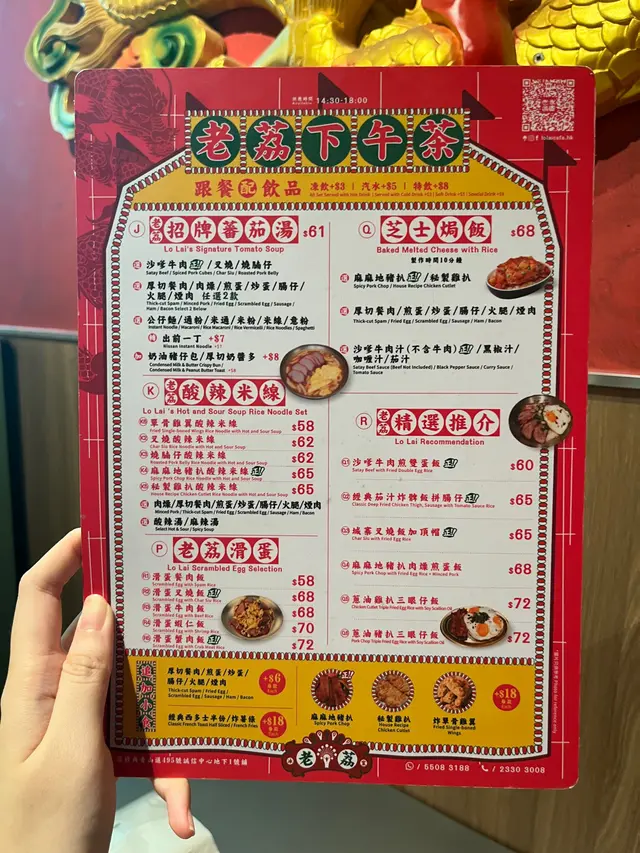 供應時間
Available 14:30-18:00
老荔下午茶
跟餐配飲品 凍飲+$3 | 汽水+$5 | 特飲+$8
J 老荔 招牌蕃茄湯 $61
Lo Lai's Signature Tomato Soup
沙嗲牛肉/叉燒/燒腩仔
Satay Beef / Spiced Pork Cubes / Char Siu / Roasted Pork Belly
厚切餐肉/肉燥/煎蛋/炒蛋/腸仔/
火腿/煙肉 任選2款
Thick-cut Spam / Minced Pork / Fried Egg / Scrambled Egg / Sausage /
Ham / Bacon Select 2 Below
公仔麵/通粉/米通/米粉/米線/意粉
Instant Noodle / Macaroni / Rice Macaroni / Rice Vermicelli / Rice Noodles / Spaghetti
轉 出前一丁 +$7
Nissan Instant Noodle +$7
加 奶油豬仔包/厚切奶醬多 +$8
Condensed Milk & Butter Crispy Bun /
Condensed Milk & Peanut Butter Toast +$8
K 老荔 酸辣米線
Lo Lai 's Hot and Sour Soup Rice Noodle Set
單骨雞翼酸辣米線 $58
Fried Single-boned Wings Rice Noodle with Hot and Sour Soup
叉燒酸辣米線 $62
Char Siu Rice Noodle with Hot and Sour Soup
燒腩仔酸辣米線 $62
Roasted Pork Belly Rice Noodle with Hot and Sour Soup
麻麻地豬扒酸辣米線 $65
Spicy Pork Chop Rice Noodle with Hot and Sour Soup
秘製雞扒酸辣米線 $65
House Recipe Chicken Cutlet Rice Noodle with Hot and Sour Soup
肉燥/厚切餐肉/煎蛋/炒蛋/腸仔/火腿/煙肉
Minced Pork / Thick-cut Spam / Fried Egg / Scrambled Egg / Sausage / Ham / Bacon
酸辣湯/麻辣湯
Select Hot & Sour / Spicy Soup
P 老荔滑蛋
Lo Lai Scrambled Egg Selection
滑蛋餐肉飯 $58
Scrambled Egg with Spam Rice
滑蛋叉燒飯 $68
Scrambled Egg with Char Siu Rice
滑蛋牛肉飯 $68
Scrambled Egg with Beef Rice
滑蛋蝦仁飯 $70
Scrambled Egg with Shrimp Rice
滑蛋蟹肉飯 $72
Scrambled Egg with Crab Meat Rice
Q 芝士焗飯 $68
Baked Melted Cheese with Rice
製作時間10分鐘
麻麻地豬扒/秘製雞扒
Spicy Pork Chop / House Recipe Chicken Cutlet
厚切餐肉/肉燥/煎蛋/炒蛋/腸仔/火腿/煙肉
Thick-cut Spam / Minced Pork / Fried Egg / Scrambled Egg / Sausage / Ham / Bacon
沙嗲牛肉汁(不含牛肉)/黑椒汁/
咖喱汁/茄汁
Satay Beef Sauce (Beef Not Included) / Black Pepper Sauce / Curry Sauce /
Tomato Sauce
R 老荔 精選推介
Lo Lai Recommendation
沙嗲牛肉煎雙蛋飯 $60
Satay Beef with Fried Double Egg Rice
經典茄汁炸髀飯拼腸仔 $65
Classic Deep Fried Chicken Thigh, Sausage with Tomato Sauce Rice
城寨叉燒飯加頂帽 $65
Char Siu with Fried Egg Rice
麻麻地豬扒肉燥煎蛋飯 $68
Spicy Pork Chop with Fried Egg Rice + Minced Pork
蔥油雞扒三眼仔飯 $72
Chicken Cutlet Triple Fried Egg Rice with Soy Scallion Oil
蔥油豬扒三眼仔飯 $72
Pork Chop Triple Fried Egg Rice with Soy Scallion Oil
追加小食
厚切餐肉/煎蛋/炒蛋/
腸仔/火腿/煙肉
Thick-cut Spam / Fried Egg /
Scrambled Egg / Sausage / Ham / Bacon
+$6 每款 Each
經典西多士半份/炸薯條
Classic French Toast Half Sliced / French Fries
+$18 每款 Each
麻麻地豬扒
Spicy Pork Chop
秘製雞扒
House Recipe
Chicken Cutlet
炸單骨雞翼
Fried Single-boned
Wings
+$18 每款 Each
老荔
495號誠信中心地下1號舖
5508 3188 / 2330 3008